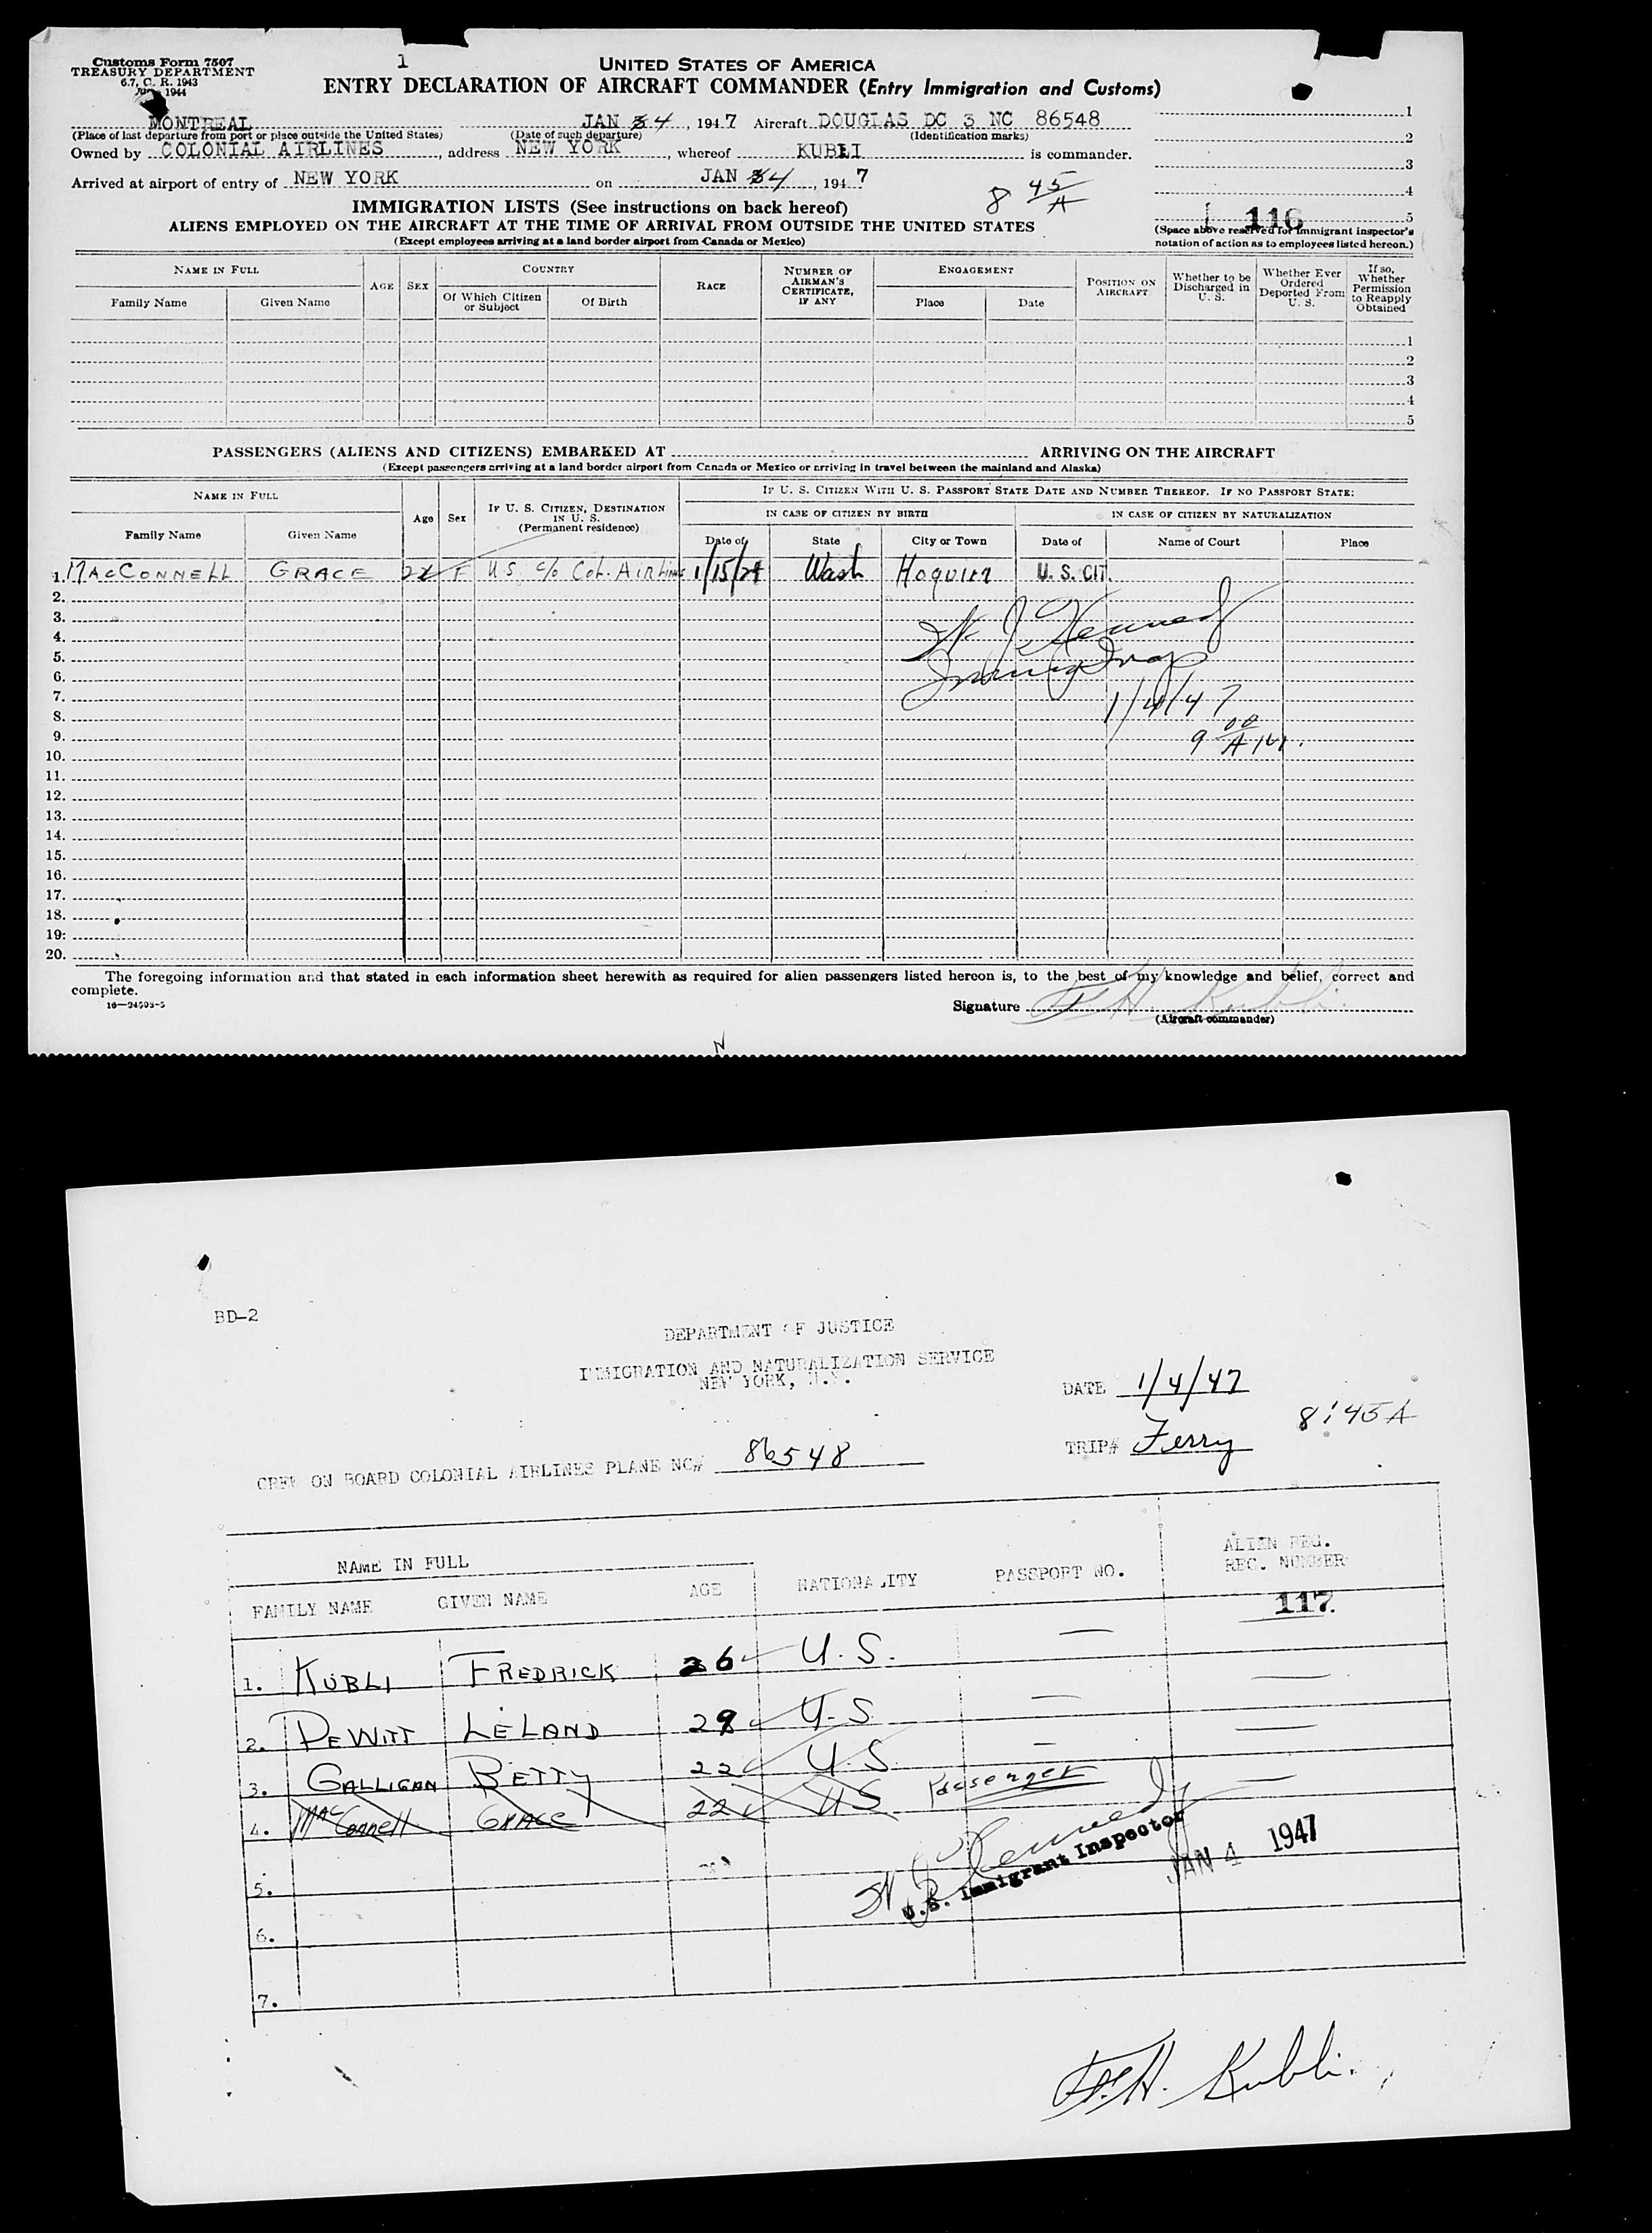 Customs Form 7507
TREASURY DEPARTMENT
6.7, C. R. 1943
1944
1
UNITED STATES OF AMERICA
ENTRY DECLARATION OF AIRCRAFT COMMANDER (Entry Immigration and Customs)
MONTREAL JAN 4, 1947 Aircraft DOUGLAS DC 3 NC 86548
(Place of last departure from port or place outside the United States) (Date of such departure) (Identification marks)
Owned by COLONIAL AIRLINES, address NEW YORK, whereof KUBLI is commander.
Arrived at airport of entry of NEW YORK on JAN 4, 1947
8 45 A
1
2
3
4
5
116
(Space above reserved for immigrant inspector's notation of action as to employees listed hereon.)
IMMIGRATION LISTS (See instructions on back hereof)
ALIENS EMPLOYED ON THE AIRCRAFT AT THE TIME OF ARRIVAL FROM OUTSIDE THE UNITED STATES
(Except employees arriving at a land border airport from Canada or Mexico)
NAME IN FULL AGE SEX COUNTRY RACE NUMBER OF AIRMAN'S CERTIFICATE, IF ANY ENGAGEMENT POSITION ON AIRCRAFT Whether to be Discharged in U. S. Whether Ever Ordered Deported From U. S. If so, Whether Permission to Reapply Obtained
Family Name Given Name Of Which Citizen or Subject Of Birth Place Date
1
2
3
4
5
PASSENGERS (ALIENS AND CITIZENS) EMBARKED AT ARRIVING ON THE AIRCRAFT
(Except passengers arriving at a land border airport from Canada or Mexico or arriving in travel between the mainland and Alaska)
NAME IN FULL Age Sex IF U. S. CITIZEN, DESTINATION IN U. S. (Permanent residence) IF U. S. CITIZEN WITH U. S. PASSPORT STATE DATE AND NUMBER THEREOF. IF NO PASSPORT STATE:
IN CASE OF CITIZEN BY BIRTH IN CASE OF CITIZEN BY NATURALIZATION
Family Name Given Name Date of State City or Town Date of Name of Court Place
1. MACCONNELL GRACE 22 F U.S. c/o Col. Airlines 1/15/24 Wash Hoquiem U. S. CIT.
2.
3.
4.
5.
6.
7.
8.
9.
10.
11.
12.
13.
14.
15.
16.
17.
18.
19.
20.
W. J. Kennedy
Immig Insp
1/4/47
9 00 A M.
The foregoing information and that stated in each information sheet herewith as required for alien passengers listed hereon is, to the best of my knowledge and belief, correct and
complete.
16—24593-5
Signature F. H. Kubli
(Aircraft commander)
N
BD-2
DEPARTMENT OF JUSTICE
IMMIGRATION AND NATURALIZATION SERVICE
NEW YORK, N.Y.
DATE 1/4/47
8:45 A
TRIP# Ferry
CREW ON BOARD COLONIAL AIRLINES PLANE NC# 86548
NAME IN FULL
FAMILY NAME GIVEN NAME AGE NATIONALITY PASSPORT NO. ALIEN REG. REC. NUMBER
117
1. KUBLI FREDRICK 26 U.S. —
2. DEWITT LELAND 29 U.S. — —
3. GALLIGAN BETTY 22 U.S. — —
4. MacConnell GRACE 22 US Passenger —
5.
6.
7.
W. J. Kennedy
U.S. Immigrant Inspector
JAN 4 1947
F. H. Kubli.